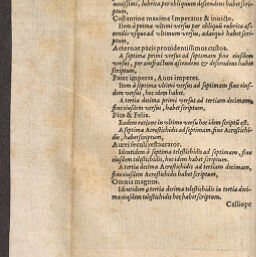 nouissimi, lubrica per obliquum descendens habet scri-
ptum,
Constantine maxime Imperator & inuicte.
Item à primo vltimi versus per obliquũ lubrica as-
cendis vsque ad vltimum versus, adæquè habet scri-
ptum,
Aeternae pacis prouidentissimus custos.
A septima primi versus ad septimam sine eiusdem
versus, per anfractum ascendens & descendens habet
scriptum,
Pater imperas, Auus imperes.
Item à septima vltimi versus ad septimam sine eius-
dem versus, hoc idem habet.
A tertia decima primi versus ad tertiam decimam,
sine eiusdem versus, habet scriptum,
Pius & Felix.
Eadem ratione in vltimo versu hoc idem scriptũ est.
A septima Acrostichidis ad septimam, sine Acrostichi-
dis, habet scriptum,
Aurei seculi restaurator.
Identidem à septima telestichidis ad septimam, sine
eiusdem telestichidis, hoc idem habet scriptum.
A tertia decima Acrostichidis ad tertiam decimam,
sine eiusdem Acrostichidis habet scriptum,
Omnia magnus.
Identidem à tertia decima telestichidis in tertia deci-
ma eiusdem telestichidis hoc habet scriptum.
Calliope